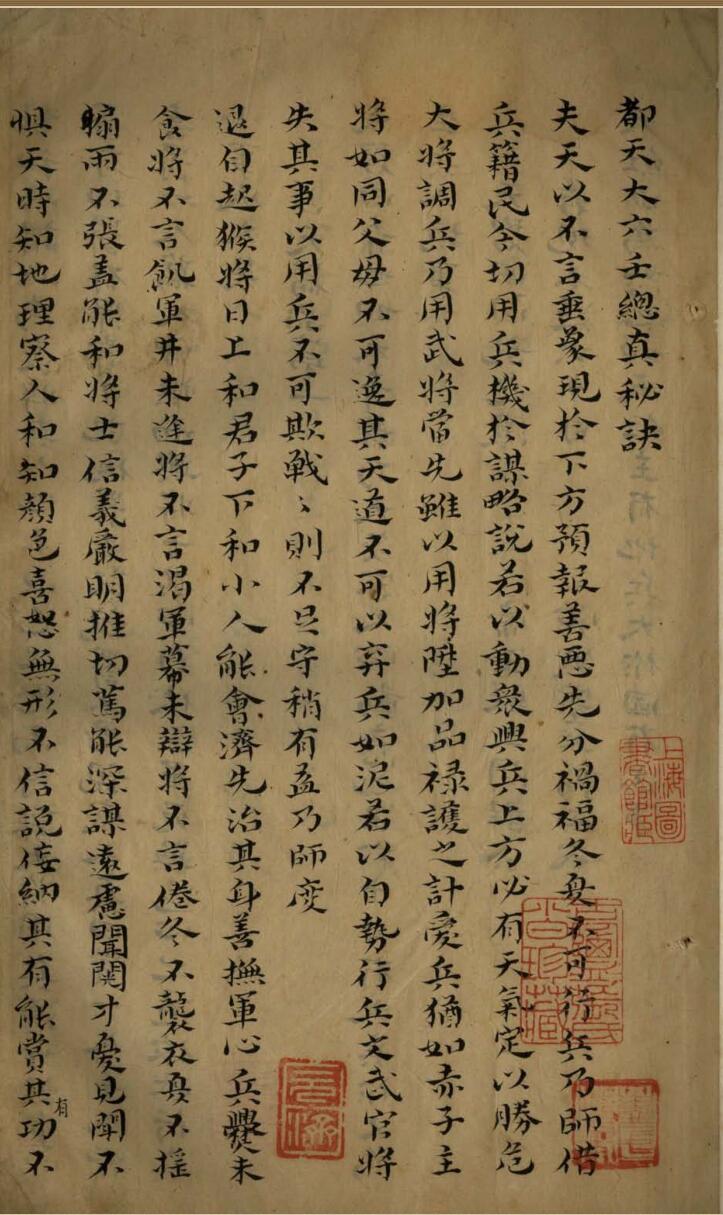 都天大六壬總真秘訣
夫天以不言垂象現於下方預報善惡先分禍福冬夏不可行兵乃師借
兵籍民今切用兵機於謀略說若以動衆興兵上方必有天氣定以勝危
大將調兵乃用武將當先雖以用將陞加品禄護之計愛兵猶如赤子主
將如同父母不可逸其天道不可以弃兵如泥若以自勢行兵文武官將
失其事以用兵不可欺戰〻則不足守稍有孟乃師度
退自起猴將日上和君子下和小人能會濟先治其身善撫軍心兵爨未
食將不言飢軍井未逹將不言渴軍幕未辯將不言倦冬不襲衣夏不搖
扇雨不張盖能和將士信義嚴明推切篤能深謀遠慮聞閗才憂見閗不
惧天時知地理察人和知顔色喜怒無形不信説佞納其有能賞其功不
有
上海圖書館藏